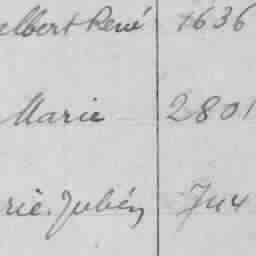 elbert René 1636
Marie 2801
rie. Jubény